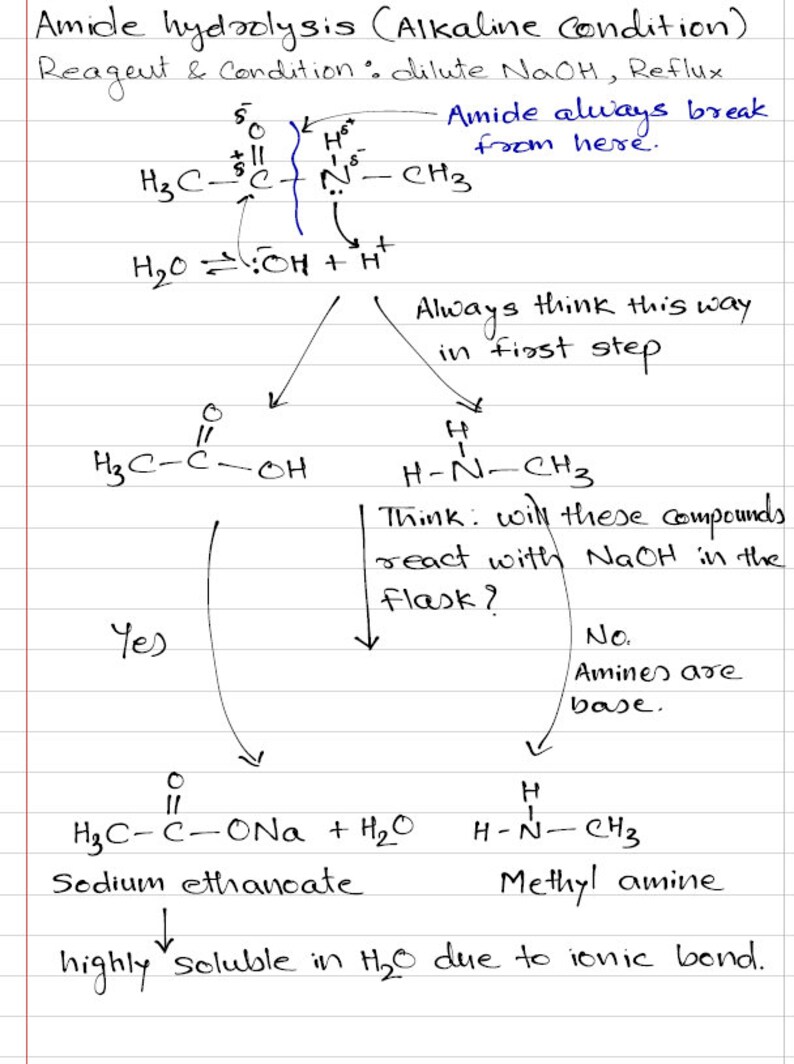 Amide hydrolysis (Alkaline Condition)
Reagent & Condition : dilute NaOH, Reflux
Amide always break
from here.
δ-
O
δ+ ||
H δ+
| δ-
H3C-C-N̤-CH3
H2O ⇌ :ŌH + H+
Always think this way
in first step
O
||
H3C-C-OH
H
|
H-N-CH3
Think: will these compounds
react with NaOH in the
flask?
Yes
No.
Amines are
base.
O
||
H3C-C-ONa + H2O
H
|
H-N-CH3
Sodium ethanoate
Methyl amine
highly soluble in H2O due to ionic bond.